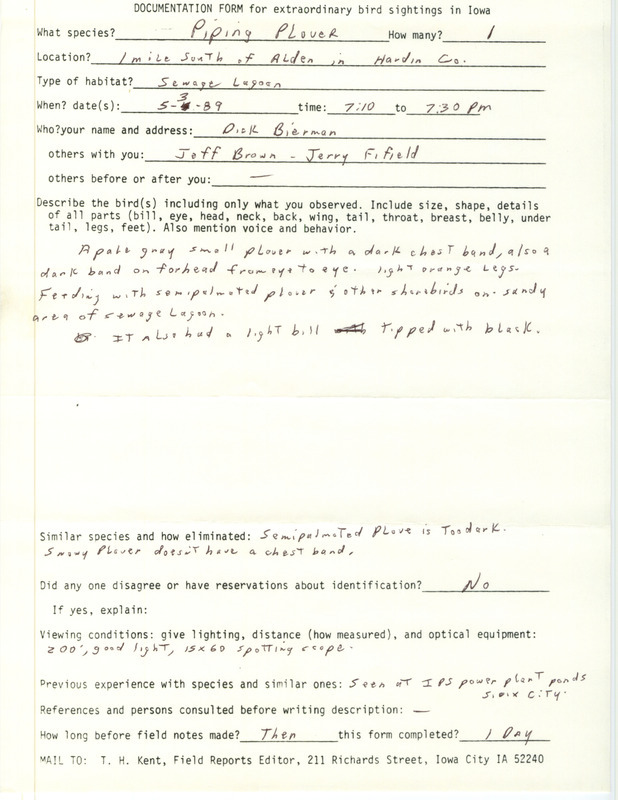 DOCUMENTATION FORM for extraordinary bird sightings in Iowa
What species? Piping Plover How many? 1
Location? 1 mile South of Alden in Hardin Co.
Type of habitat? Sewage Lagoon
When? date(s): 5-3-89 time: 7:10 to 7:30 Pm
Who?your name and address: Dick Bierman
others with you: Jeff Brown - Jerry Fifield
others before or after you: —
Describe the bird(s) including only what you observed. Include size, shape, details
of all parts (bill, eye, head, neck, back, wing, tail, throat, breast, belly, under
tail, legs, feet). Also mention voice and behavior.
A pale gray small plover with a dark chest band, also a
dark band on forhead from eye to eye. light orange legs.
Feeding with semipalmated plover & other shorebirds on sandy
area of sewage Lagoon.
It also had a light bill tipped with black.
Similar species and how eliminated: Semipalmated Plove is Too dark.
Snowy Plover doesn't have a chest band.
Did any one disagree or have reservations about identification? No
If yes, explain:
Viewing conditions: give lighting, distance (how measured), and optical equipment:
200', good light, 15x60 spotting scope.
Previous experience with species and similar ones: Seen at IPS power plant ponds
Sioix City.
References and persons consulted before writing description: —
How long before field notes made? Then this form completed? 1 Day
MAIL TO: T. H. Kent, Field Reports Editor, 211 Richards Street, Iowa City IA 52240